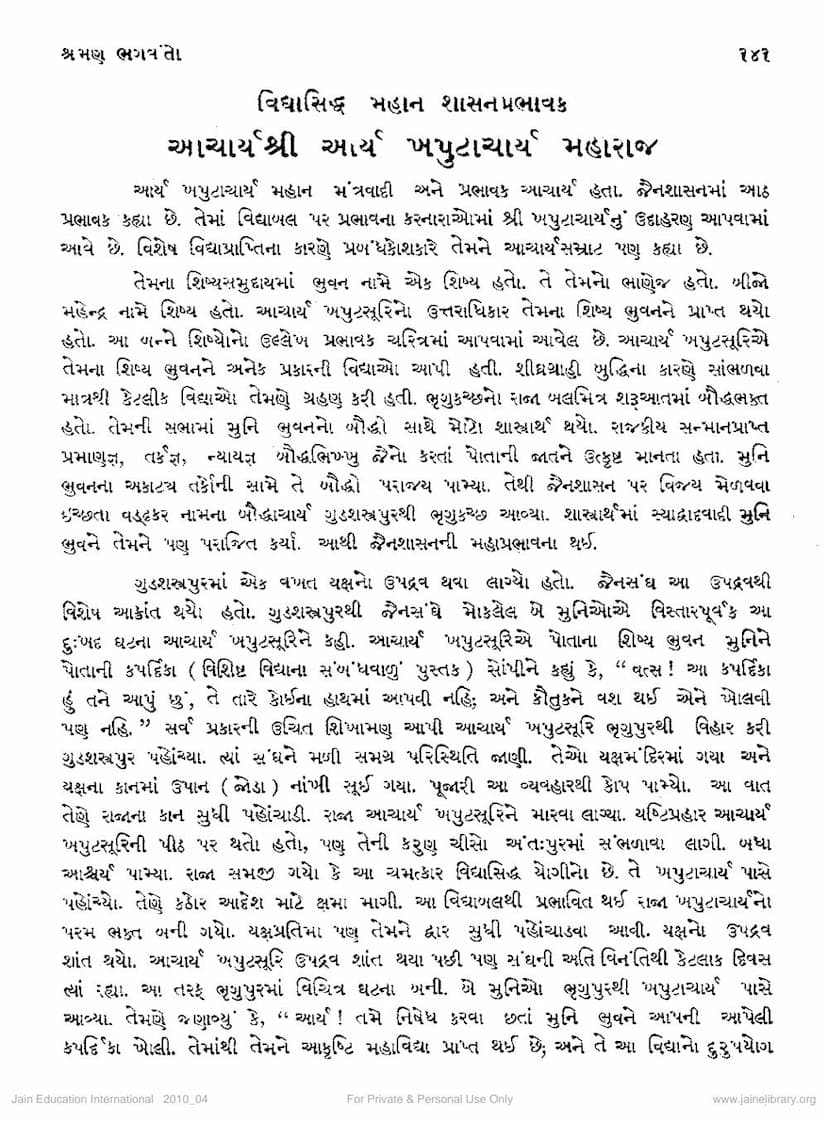 શ્રમણ ભગવંતો ૧૪૧
વિદ્યાસિદ્ધ મહાન શાસનપ્રભાવક
આચાર્યશ્રી આર્ય ખપુટાચાર્ય મહારાજ
આર્ય ખપુટાચાર્ય મહાન મંત્રવાદી અને પ્રભાવક આચાર્ય હતા. જૈનશાસનમાં આઠ
પ્રભાવક કહ્યા છે. તેમાં વિદ્યાબલ પર પ્રભાવના કરનારાઓમાં શ્રી ખપુટાચાર્યનું ઉદાહરણ આપવામાં
આવે છે. વિશેષ વિદ્યાપ્રાપ્તિના કારણે પ્રબંધકોશકારે તેમને આચાર્યસમ્રાટ પણ કહ્યા છે.
તેમના શિષ્યસમુદાયમાં ભુવન નામે એક શિષ્ય હતો. તે તેમનો ભાણેજ હતો. બીજો
મહેન્દ્ર નામે શિષ્ય હતો. આચાર્ય ખપુટસૂરિનો ઉત્તરાધિકાર તેમના શિષ્ય ભુવનને પ્રાપ્ત થયો
હતો. આ બન્ને શિષ્યોનો ઉલ્લેખ પ્રભાવક ચરિત્રમાં આપવામાં આવેલ છે. આચાર્ય ખપુટસૂરિએ
તેમના શિષ્ય ભુવનને અનેક પ્રકારની વિદ્યાઓ આપી હતી. શીઘ્રગ્રાહી બુદ્ધિના કારણે સાંભળવા
માત્રથી કેટલીક વિદ્યાઓ તેમણે ગ્રહણ કરી હતી. ભૃગુકચ્છનો રાજા બલમિત્ર શરૂઆતમાં બૌદ્ધભક્ત
હતો. તેમની સભામાં મુનિ ભુવનનો બૌદ્ધો સાથે મોટો શાસ્ત્રાર્થ થયો. રાજકીય સન્માનપ્રાપ્ત
પ્રમાણજ્ઞ, તર્કજ્ઞ, ન્યાયજ્ઞ બૌદ્ધભિખ્ખુ જૈનો કરતાં પોતાની જાતને ઉત્કૃષ્ટ માનતા હતા. મુનિ
ભુવનના અકાટ્ય તર્કોની સામે તે બૌદ્ધો પરાજય પામ્યા. તેથી જૈનશાસન પર વિજય મેળવવા
ઇચ્છતા વડ્ઢકર નામના બૌદ્ધાચાર્ય ગુડશસ્ત્રપુરથી ભૃગુકચ્છ આવ્યા. શાસ્ત્રાર્થમાં સ્યાદ્વાદવાદી મુનિ
ભુવને તેમને પણ પરાજિત કર્યા. આથી જૈનશાસનની મહાપ્રભાવના થઈ.
ગુડશસ્ત્રપુરમાં એક વખત યક્ષનો ઉપદ્રવ થવા લાગ્યો હતો. જૈનસંઘ આ ઉપદ્રવથી
વિશેષ આક્રાંત થયો હતો. ગુડશસ્ત્રપુરથી જૈનસંઘે મોકલેલ બે મુનિઓએ વિસ્તારપૂર્વક આ
દુઃખદ ઘટના આચાર્ય ખપુટસૂરિને કહી. આચાર્ય ખપુટસૂરિએ પોતાના શિષ્ય ભુવન મુનિને
પોતાની કપર્દિકા ( વિશિષ્ટ વિદ્યાના સંબંધવાળું પુસ્તક ) સોંપીને કહ્યું કે, “ વત્સ ! આ કપર્દિકા
હું તને આપું છું, તે તારે કોઈના હાથમાં આપવી નહિ; અને કૌતુકને વશ થઈ એને ખોલવી
પણ નહિ. ” સર્વ પ્રકારની ઉચિત શિખામણ આપી આચાર્ય ખપુટસૂરિ ભૃગુપુરથી વિહાર કરી
ગુડશસ્ત્રપુર પહોંચ્યા. ત્યાં સંઘને મળી સમગ્ર પરિસ્થિતિ જાણી. તેઓ યક્ષમંદિરમાં ગયા અને
યક્ષના કાનમાં ઉપાન ( જોડા ) નાંખી સૂઈ ગયા. પૂજારી આ વ્યવહારથી કોપ પામ્યો. આ વાત
તેણે રાજાના કાન સુધી પહોંચાડી. રાજા આચાર્ય ખપુટસૂરિને મારવા લાગ્યા. યષ્ટિપ્રહાર આચાર્ય
ખપુટસૂરિની પીઠ પર થતો હતો, પણ તેની કરુણ ચીસો અંતઃપુરમાં સંભળાવા લાગી. બધા
આશ્ચર્ય પામ્યા. રાજા સમજી ગયો કે આ ચમત્કાર વિદ્યાસિદ્ધ યોગીનો છે. તે ખપુટાચાર્ય પાસે
પહોંચ્યો. તેણે કઠોર આદેશ માટે ક્ષમા માગી. આ વિદ્યાબલથી પ્રભાવિત થઈ રાજા ખપુટાચાર્યનો
પરમ ભક્ત બની ગયો. યક્ષપ્રતિમા પણ તેમને દ્વાર સુધી પહોંચાડવા આવી. યક્ષનો ઉપદ્રવ
શાંત થયો. આચાર્ય ખપુટસૂરિ ઉપદ્રવ શાંત થયા પછી પણ સંઘની અતિ વિનંતિથી કેટલાક દિવસ
ત્યાં રહ્યા. આ તરફ ભૃગુપુરમાં વિચિત્ર ઘટના બની. બે મુનિઓ ભૃગુપુરથી ખપુટાચાર્ય પાસે
આવ્યા. તેમણે જણાવ્યું કે, “ આર્ય ! તમે નિષેધ કરવા છતાં મુનિ ભુવને આપની આપેલી
કપર્દિકા ખોલી. તેમાંથી તેમને આકૃષ્ટિ મહાવિદ્યા પ્રાપ્ત થઈ છે; અને તે આ વિદ્યાનો દુરુપયોગ
Jain Education International 2010_04 For Private & Personal Use Only www.jainelibrary.org